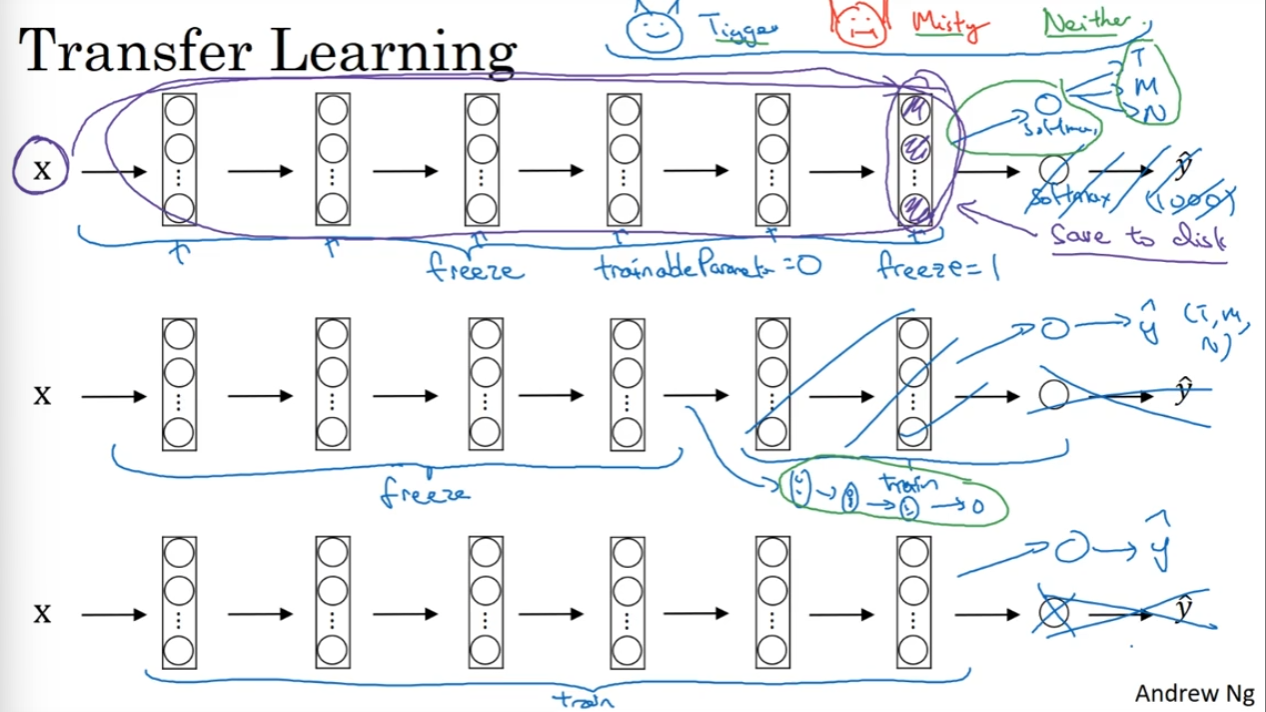 Transfer Learning
Tigger Misty Neither
T
M
N
softmax
x
ŷ
softmax (1000)
Save to disk
freeze trainableParameter = 0 freeze = 1
ŷ (T, M,
N)
x
ŷ
freeze
train
ŷ
x
ŷ
train
Andrew Ng